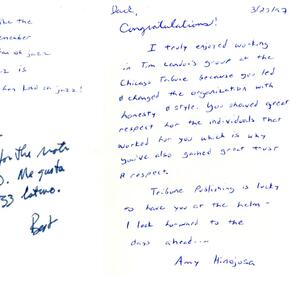 like the
remember
jazz
is
jazz!
for the note
Me gusta
latino.
Best
Jack,
3/23/97
Congratulations!
I truly enjoyed working
in Tim Landon's group at the
Chicago Tribune because you led
& changed the organization with
honesty & style. You showed great
respect for the individuals that
worked for you which is why
you've also gained great trust
& respect.
Tribune Publishing is lucky
to have you at the helm-
I look forward to the
days ahead...
Amy Hinojosa